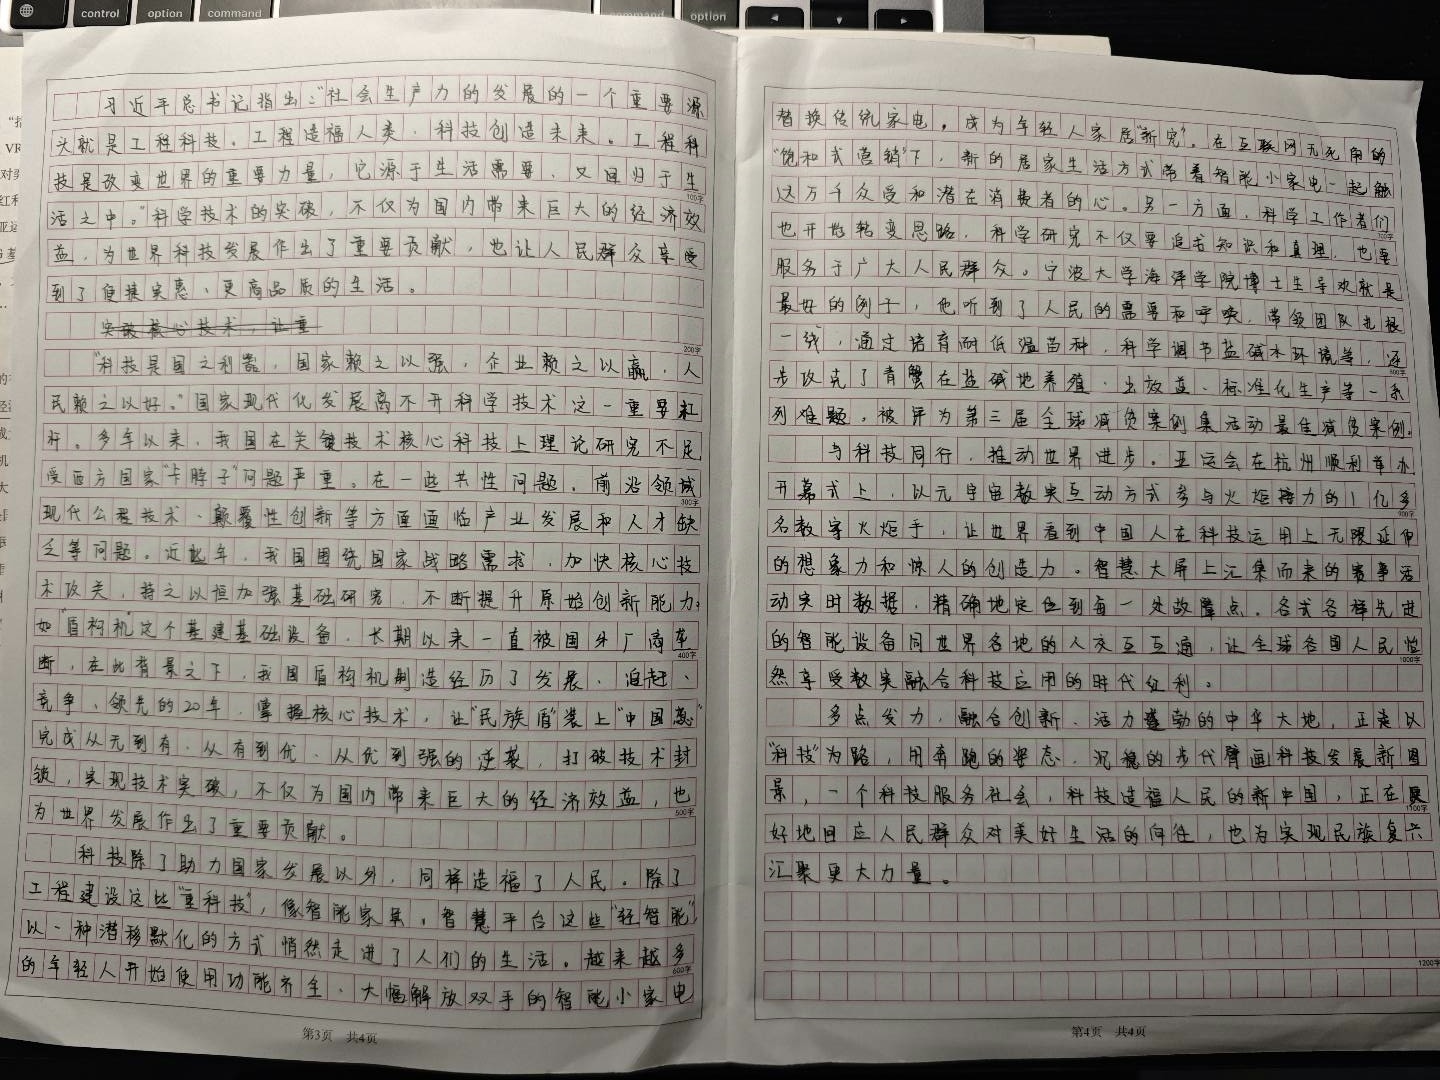 control
option
command
command
option
习近平总书记指出："社会生产力的发展的一个重要源
头就是工程科技。工程造福人类，科技创造未来。工程科
技是改变世界的重要力量，它源于生活需要，又回归于生
100字
活之中。"科学技术的突破，不仅为国内带来巨大的经济效
益，为世界科技发展作出了重要贡献，也让人民群众享受
到了便捷实惠、更高品质的生活。
突破核心技术，让重
200字
"科技是国之利器，国家赖之以强，企业赖之以赢，人
民赖之以好。"国家现代化发展离不开科学技术这一重要杠
杆。多年以来，我国在关键技术核心科技上理论研究不足
受西方国家"卡脖子"问题严重。在一些共性问题、前沿领域
300字
现代工程技术、颠覆性创新等方面面临产业发展和人才缺
乏等问题。近些年，我国围绕国家战略需求，加快核心技
术攻关，持之以恒加强基础研究，不断提升原始创新能力；
如"盾构机"这个基建基础设备，长期以来一直被国外厂商垄
400字
断，在此背景之下，我国盾构机制造经历了发展、追赶、
竞争、领先的20年，掌握核心技术，让"民族盾"装上"中国芯"
完成从无到有、从有到优、从优到强的逆袭，打破技术封
锁，实现技术突破，不仅为国内带来巨大的经济效益，也
500字
为世界发展作出了重要贡献。
科技除了助力国家发展以外，同样造福了人民。除了
工程建设这些"重科技"，像智能家具，智慧平台这些"轻智能"
以一种潜移默化的方式悄然走进了人们的生活。越来越多
600字
的年轻人开始使用功能齐全、大幅解放双手的智能小家电
第3页 共4页
替换传统家电，成为年轻人家居"新宠"。在互联网无死角的
"饱和式营销"下，新的居家生活方式带着智能小家电一起触
达万千众受和潜在消费者的心。另一方面，科学工作者们
700字
也开始转变思路，科学研究不仅要追求知识和真理，也要
服务于广大人民群众。宁波大学海洋学院博士生导欢就是
最好的例子，他听到了人民的需要和呼唤，带领团队扎根
一线，通过培育耐低温苗种，科学调节盐碱水环境等，逐
800字
步攻克了青蟹在盐碱地养殖、出放益、标准化生产等一系
列难题，被评为第三届全球减贫案例集活动最佳减贫案例。
与科技同行，推动世界进步。亚运会在杭州顺利举办
开幕式上，以元宇宙数实互动方式参与火炬接力的1亿多
900字
名数字火炬手，让世界看到中国人在科技运用上无限延伸
的想象力和惊人的创造力。智慧大屏上汇集而来的赛事活
动实时数据，精确地定位到每一处故障点。各式各样先进
的智能设备同世界各地的人交互互通，让全球各国人民怡
1000字
然享受数实融合科技应用的时代红利。
多点发力，融合创新，活力蓬勃的中华大地，正走以
"科技"为路，用奔跑的姿态，沉稳的步代臂画科技发展新图
景，一个科技服务社会，科技造福人民的新中国，正在更
1100字
好地回应人民群众对美好生活的向往，也为实现民族复兴
汇聚更大力量。
1200字
第4页 共4页